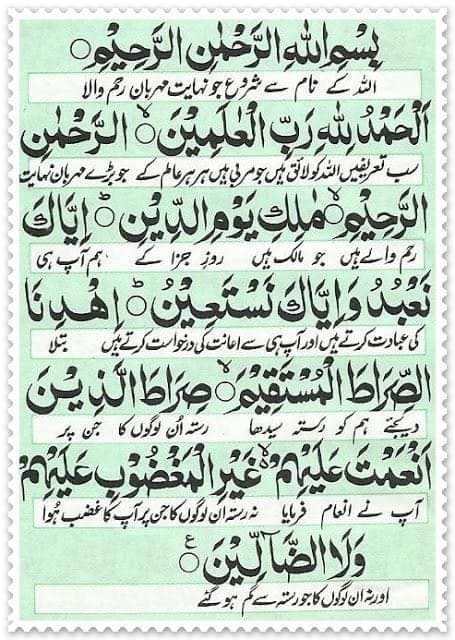 بِسْمِ اللهِ الرَّحْمٰنِ الرَّحِيْمِ ○
اللہ کے نام سے شروع جو نہایت مہربان رحم والا
اَلْحَمْدُ لِلهِ رَبِّ الْعٰلَمِيْنَ ۙ○ الرَّحْمٰنِ
سب تعریفیں اللہ کو لائق ہیں جو مربی ہیں ہر ہر عالم کے جو بڑے مہربان نہایت
الرَّحِيْمِ ۙ○ مٰلِكِ يَوْمِ الدِّيْنِ ○ؕ اِيَّاكَ
رحم والے ہیں جو مالک ہیں روزِ جزا کے ہم آپ ہی
نَعْبُدُ وَاِيَّاكَ نَسْتَعِيْنُ ○ؕ اِهْدِنَا
کی عبادت کرتے ہیں اور آپ ہی سے اعانت کی درخواست کرتے ہیں بتلا
الصِّرَاطَ الْمُسْتَقِيْمَ ۙ○ صِرَاطَ الَّذِيْنَ
دیجئے ہم کو رستہ سیدھا رستہ اُن لوگوں کا جن پر
اَنْعَمْتَ عَلَيْهِمْ ۙ○ غَيْرِ الْمَغْضُوْبِ عَلَيْهِمْ
آپ نے انعام فرمایا نہ رستہ ان لوگوں کا جن پر آپ کا غضب ہُوا
وَلَا الضَّآلِّيْنَ ○ع
اور نہ ان لوگوں کا جو رستہ سے گم ہو گئے